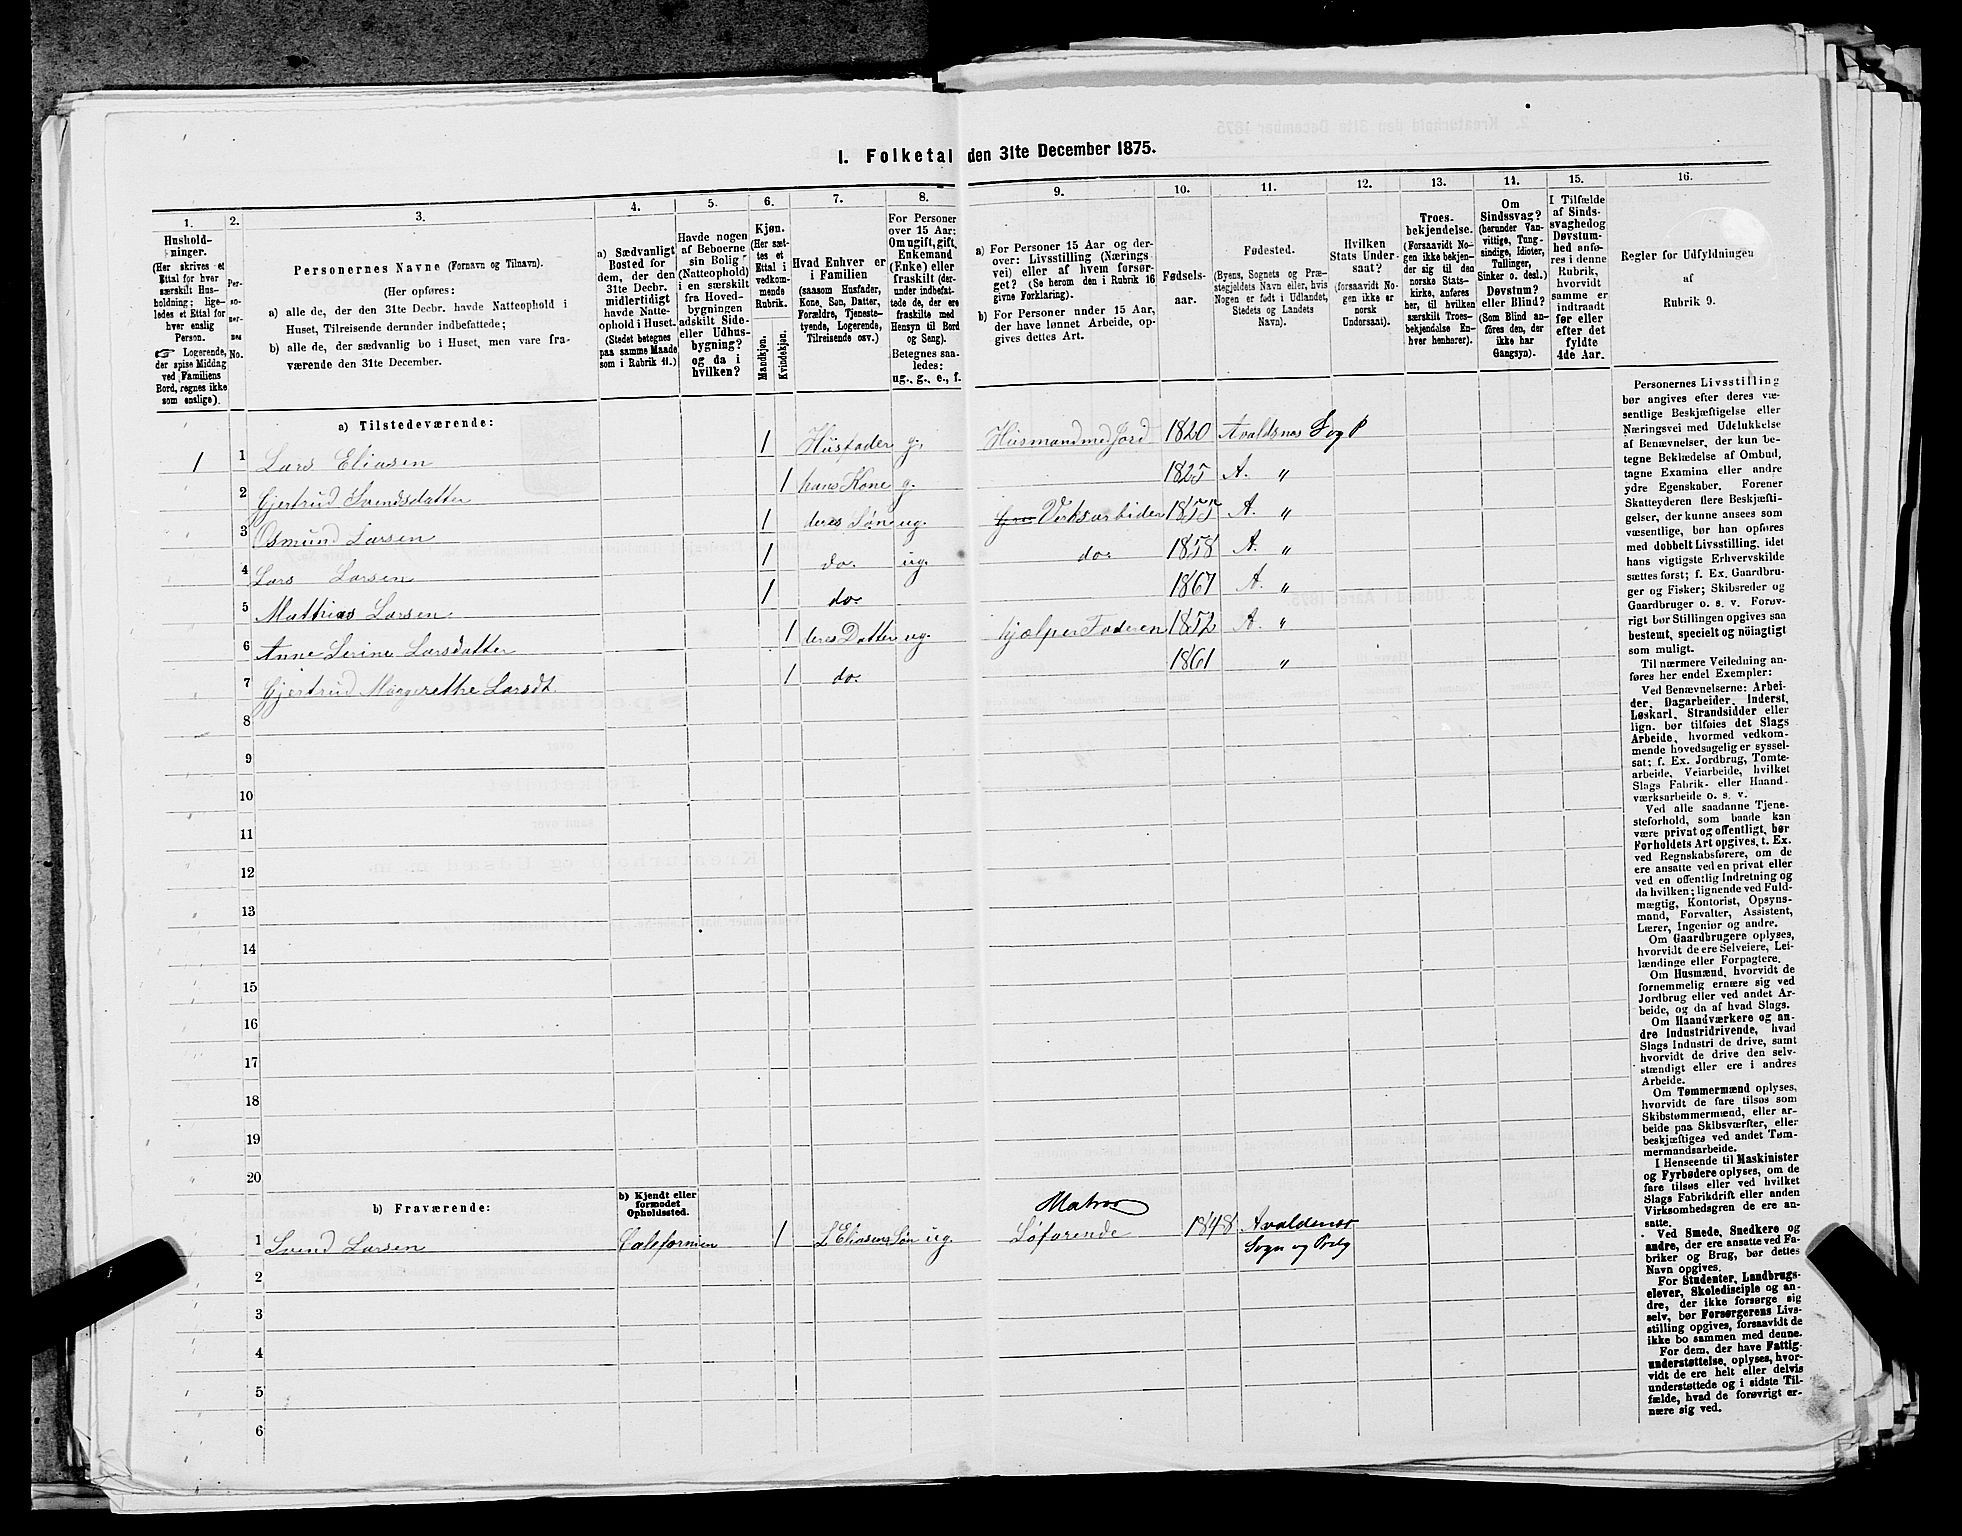 I. Folketal den 31te December 1875.
1.
Hushold-
ninger.
(Her skrives et
Ettal for hver
særskilt Hus-
holdning; lige-
ledes et Ettal for
hver enslig
Person.
☞ Logerende,
der spise Middag
ved Familiens
Bord, regnes ikke
som enslige).
2.
Per-
so-
ner-
nes
No.
3.
Personernes Navne (Fornavn og Tilnavn).
(Her opføres:
a) alle de, der den 31te Decbr. havde Natteophold i
Huset, Tilreisende derunder indbefattede;
b) alle de, der sædvanlig bo i Huset, men vare fra-
værende den 31te December.
4.
a) Sædvanligt
Bosted for
dem, der den
31te Decbr.
midlertidigt
havde Natte-
ophold i Huset.
(Stedet betegnes
paa samme Maade
som i Rubrik 11.)
5.
Havde nogen
af Beboerne
sin Bolig
(Natteophold)
i en særskilt
fra Hoved-
bygningen
adskilt Side-
eller Udhus-
bygning?
og da i
hvilken?
6.
Kjøn.
(Her sæt-
tes et
Ettal i
vedkom-
mende
Rubrik.
Mandkjøn.
Kvindekjøn.
7.
Hvad Enhver er
i Familien
(saasom Husfader,
Kone, Søn, Datter,
Forældre, Tjeneste-
tyende, Logerende,
Tilreisende osv.)
8.
For Personer
over 15 Aar:
Om ugift, gift,
Enkemand
(Enke) eller
fraskilt (der-
under indbefat-
tede de, der ere
fraskilte med
Hensyn til Bord
og Seng).
Betegnes saa-
ledes:
ug., g., e., f.
9.
a) For Personer 15 Aar og der-
over: Livsstilling (Nærings-
vei) eller af hvem forsør-
get? (Se herom den i Rubrik 16
givne Forklaring).
b) For Personer under 15 Aar,
der have lønnet Arbeide, op-
gives dettes Art.
10.
Fødsels-
aar.
11.
Fødested.
(Byens, Sognets og Præ-
stegjeldets Navn eller, hvis
Nogen er født i Udlandet,
Stedets og Landets
Navn).
12.
Hvilken
Stats Under-
saat?
(forsaavidt No-
gen ikke er
norsk
Undersaat).
13.
Troes-
bekjendelse.
(Forsaavidt No-
gen ikke bekjen-
der sig til den
norske Stats-
kirke, anføres
her, til hvilken
særskilt Troes-
bekjendelse En-
hver henhører).
14.
Om
Sindssvag?
(herunder Van-
vittige, Tung-
sindige, Idioter,
Tullinger,
Sinker o. desl.)
Døvstum?
eller Blind?
(Som Blind an-
føres den, der
ikke har
Gangsyn).
15.
I Tilfælde
af Sinds-
svaghed og
Døvstum-
hed anfø-
res i denne
Rubrik,
hvorvidt
samme er
indtraadt
før eller
efter det
fyldte
4de Aar.
16.
Regler for Udfyldningen
af
Rubrik 9.
a) Tilstedeværende:
1 1 Lars Eliasen 1 Husfader g. Husmand med Jord 1820 Avaldsnes S og P
2 Gjertrud Svendsdatter 1 hans Kone g. 1825 A. "
3 Osmund Larsen 1 deres Søn ug. Verksarbider 1855 A. "
4 Lars Larsen 1 do. ug. do. 1858 A. "
5 Matthias Larsen 1 do. 1867 A. "
6 Anne Serine Larsdatter 1 deres Datter ug. hjælper Faderen 1852 A. "
7 Gjertrud Marggrethe Larsdt 1 do. 1861 "
8
9
10
11
12
13
14
15
16
17
18
19
20
b) Fraværende:
b) Kjendt eller
formodet
Opholdssted.
Matros
1 Svend Larsen Calefornien 1 L Eliasens Søn ug. Søfarende 1848 Avaldsnes
Sogn og Prstg
2
3
4
5
6
Personernes Livsstilling
bør angives efter deres væ-
sentlige Beskjæftigelse eller
Næringsvei med Udelukkelse
af Benævnelser, der kun be-
tegne Beklædelse af Ombud,
tagne Examina eller andre
ydre Egenskaber. Forener
Skatteyderen flere Beskjæfti-
gelser, der kunne ansees som
væsentlige, bør han opføres
med dobbelt Livsstilling, idet
hans vigtigste Erhvervskilde
sættes først; f. Ex. Gaardbru-
ger og Fisker; Skibsreder og
Gaardbruger o. s. v. Forøv-
rigt bør Stillingen opgives saa
bestemt, specielt og nöiagtigt
som muligt.
Til nærmere Veiledning an-
føres her endel Exempler:
Ved Benævnelserne: Arbei-
der, Dagarbeider, Inderst,
Løskarl, Strandsidder eller
lign. bør tilføies det Slags
Arbeide, hvormed vedkom-
mende hovedsagelig er syssel-
sat; f. Ex. Jordbrug, Tomte-
arbeide, Veiarbeide, hvilket
Slags Fabrik- eller Haand-
værksarbeide o. s. v.
Ved alle saadanne Tjene-
steforhold, som baade kan
være privat og offentligt, bør
Forholdets Art opgives, t. Ex.
ved Regnskabsførere, om de
ere ansatte ved en privat eller
ved en offentlig Indretning og
da hvilken; lignende ved Fuld-
mægtig, Kontorist, Opsyns-
mand, Forvalter, Assistent,
Lærer, Ingeniør og andre.
Om Gaardbrugere oplyses,
hvorvidt de ere Selveiere, Lei-
lændinge eller Forpagtere.
Om Husmænd, hvorvidt de
fornemmelig ernære sig ved
Jordbrug eller ved andet Ar-
beide, og da af hvad Slags.
Om Haandværkere og an-
dre Industridrivende, hvad
Slags Industri de drive, samt
hvorvidt de drive den selv-
stændigt eller ere i andres
Arbeide.
Om Tømmermænd oplyses,
hvorvidt de fare tilsøs som
Skibstømmermænd, eller ar-
beide paa Skibsværfter, eller
beskjæftiges ved andet Tøm-
mermandsarbeide.
I Henseende til Maskinister
og Fyrbødere oplyses, om de
fare tilsøs eller ved hvilket
Slags Fabrikdrift eller anden
Virksomhedsgren de ere an-
satte.
Ved Smede, Snedkere og
andre, der ere ansatte ved Fa-
briker og Brug, bør dettes
Navn opgives.
For Studenter, Landbrugs-
elever, Skoledisciple og an-
dre, der ikke forsørge sig
selv, bør Forsørgerens Livs-
stilling opgives, forsaavidt de
ikke bo sammen med denne.
For dem, der have Fattig-
understøttelse, oplyses, hvor-
vidt de ere helt eller delvis
understøttede og i sidste Til-
fælde, hvad de forøvrigt er-
nære sig ved.